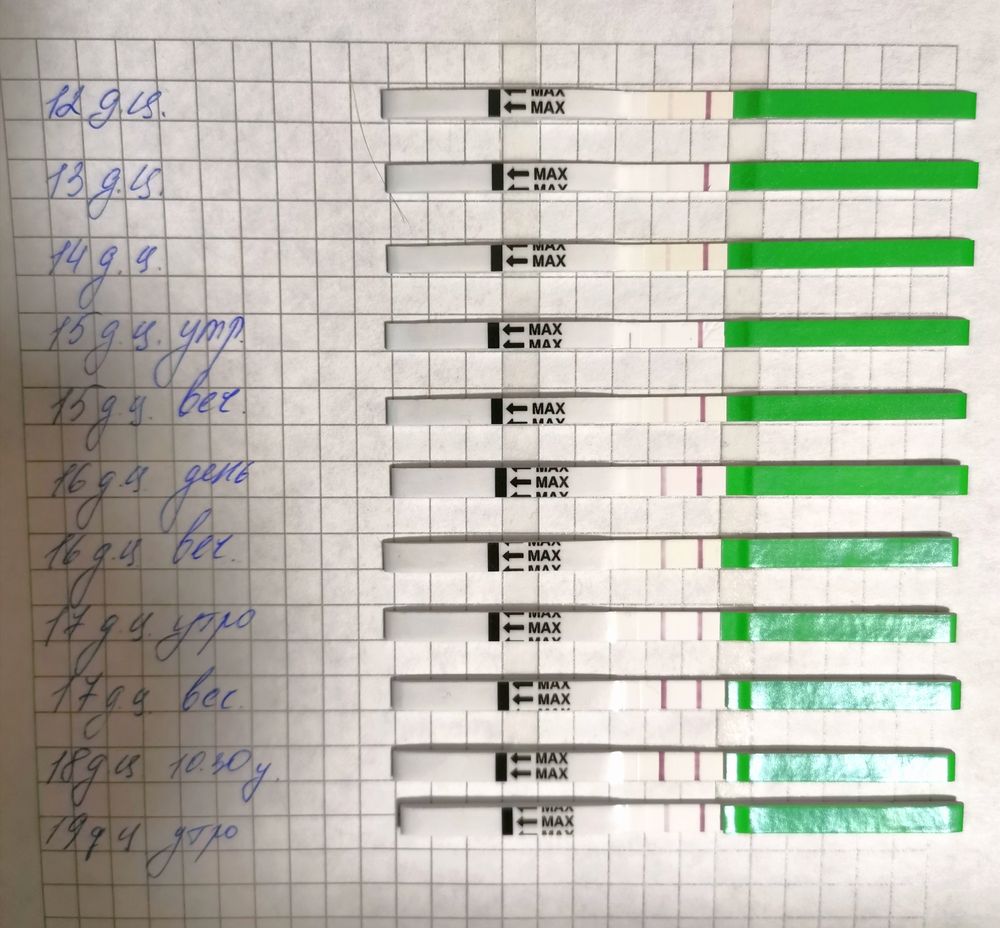 12 д.ц. MAX MAX
13 д.ц. MAX MAX
14 д.ц. MAX MAX
15 д.ц. утр. MAX MAX
15 д.ц. веч. MAX
16 д.ц. день MAX MAX MAX
16 д.ц веч. MAX MAX MAX
17 д.ц. утро MAX MAX MAX
17 д.ц. вес. MAX MAX
18 д ц 10.30 у. MAX MAX
19 д ц утро MAX MAX MAX